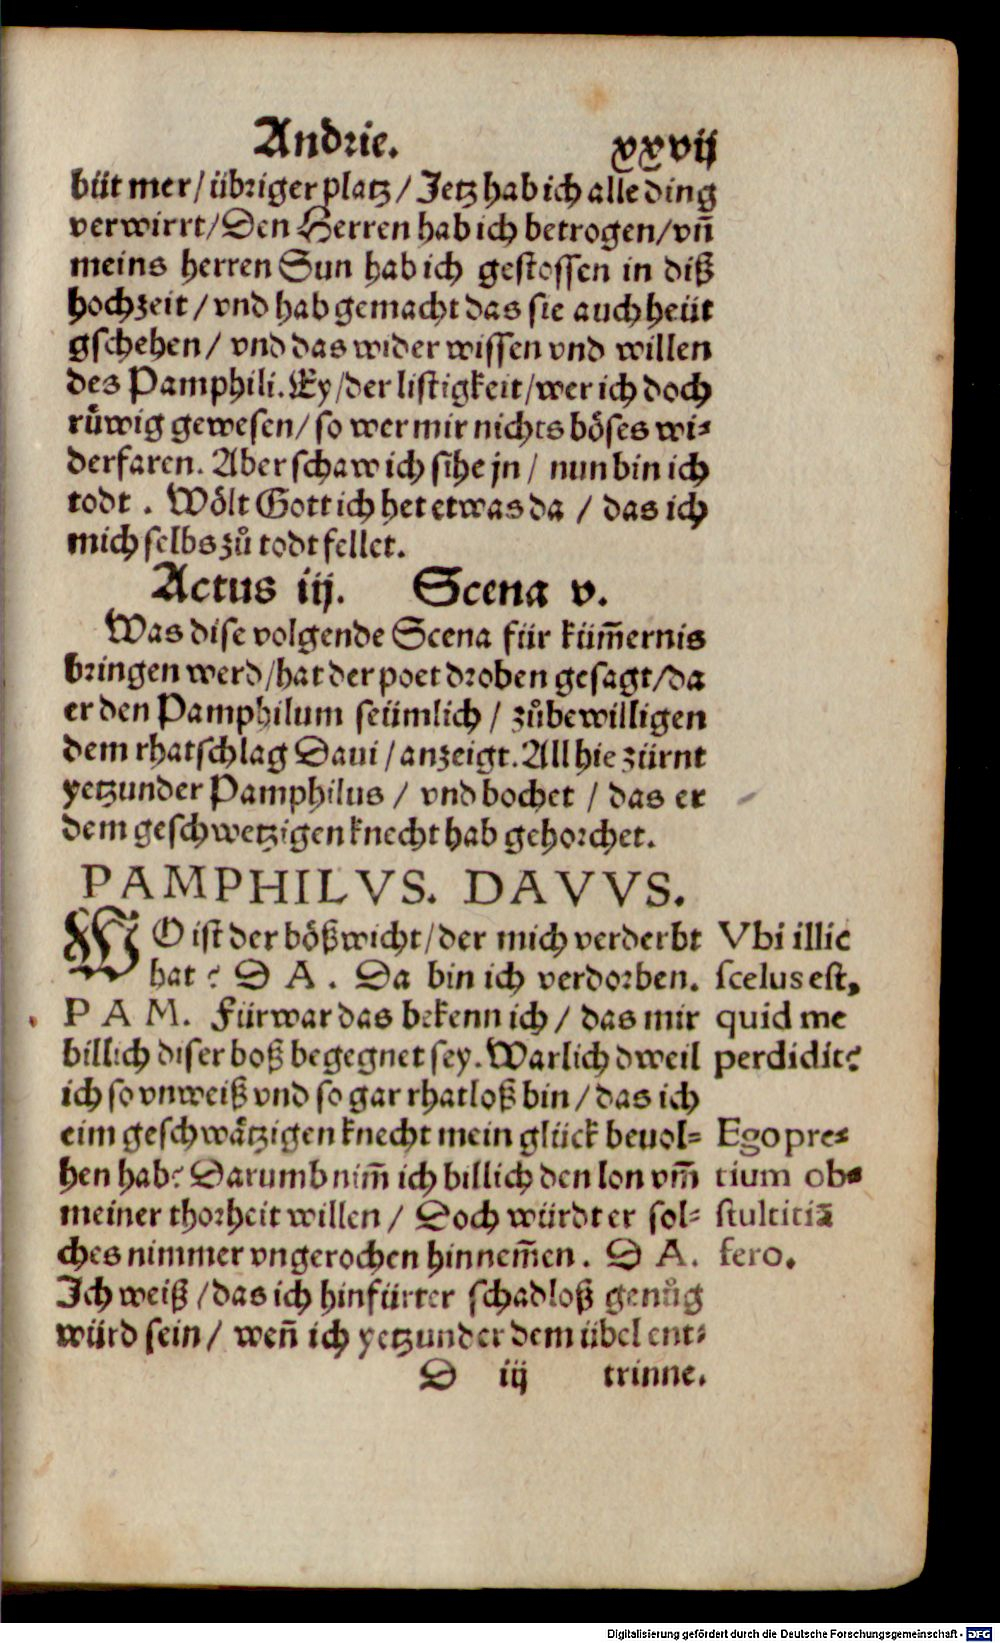 Andrie. xxvij
büt mer/ übriger platz/ Jetz hab ich alle ding
verwirrt/ Den Herren hab ich betrogen/ vñ
meins herren Sun hab ich gestossen in diß
hochzeit/ vnd hab gemacht das sie auch heüt
gschehen/ vnd das wider wissen vnd willen
des Pamphili. Ey/ der listigkeit/ wer ich doch
rüwig gewesen/ so wer mir nichts böses wi⸗
derfaren. Aber schaw ich sihe jn/ nun bin ich
todt. Wölt Gott ich het etwas da/ das ich
mich selbs zů todt fellet.
Actus iij. Scena v.
Was dise volgende Scena für küm̄ernis
bringen werd/ hat der poet droben gesagt/ da
er den Pamphilum seümlich/ zůbewilligen
dem rhatschlag Daui/ anzeigt. All hie zürnt
yetzunder Pamphilus/ vnd bochet/ das er
dem geschwetzigen knecht hab gehorchet.
PAMPHILVS. DAVVS.
WO ist der bößwicht/ der mich verderbt
hat? DA. Da bin ich verdorben.
PAM. Fürwar das bekenn ich/ das mir
billich diser boß begegnet sey. Warlich dweil
ich so vnweiß vnd so gar rhatloß bin/ das ich
eim geschwätzigen knecht mein glück beuol⸗
hen hab? Darumb nim̄ ich billich den lon vm̄
meiner thorheit willen/ Doch würdt er sol⸗
ches nimmer vngerochen hinnem̄en. DA.
Ich weiß/ das ich hinfürter schadloß genůg
würd sein/ weñ ich yetzunder dem übel ent⸗
D iij trinne.
Vbi illic
scelus est,
quid me
perdidit?
Ego pre⸗
tium ob⸗
stultitiā
fero.
Digitalisierung gefördert durch die Deutsche Forschungsgemeinschaft - DFG